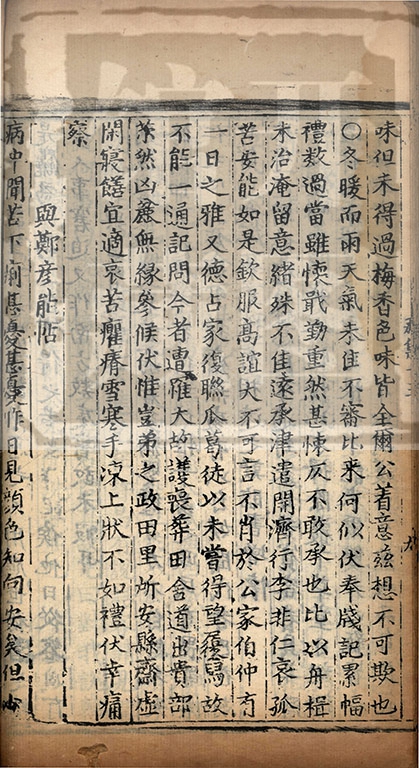 味但未得過梅香色味皆全爾公着意茲想不可欺也
○冬暖而雨天氣未佳不審比來何似伏奉牋記累幅
禮數過當雖懷戢勤重然甚悚仄不敢承也比以舟楫
未治淹留意緒殊不佳遠承津遣開濟行李非仁哀孤
苦安能如是欽服高誼大不可言不肖於公家伯仲有
一日之雅又德占家復聯瓜葛徒以未嘗得望履舄故
不能一通記問今者遭罹大故護喪葬田舍道出貴部
茶然凶衰無緣參候伏惟豈弟之政田里所安縣齋虛
閑寢饍宜適哀苦癯瘠雪寒手凍上狀不如禮伏幸痛
察
與鄭彥能帖
病中聞苦下痢甚憂甚憂昨日見顏色知向安矣但少